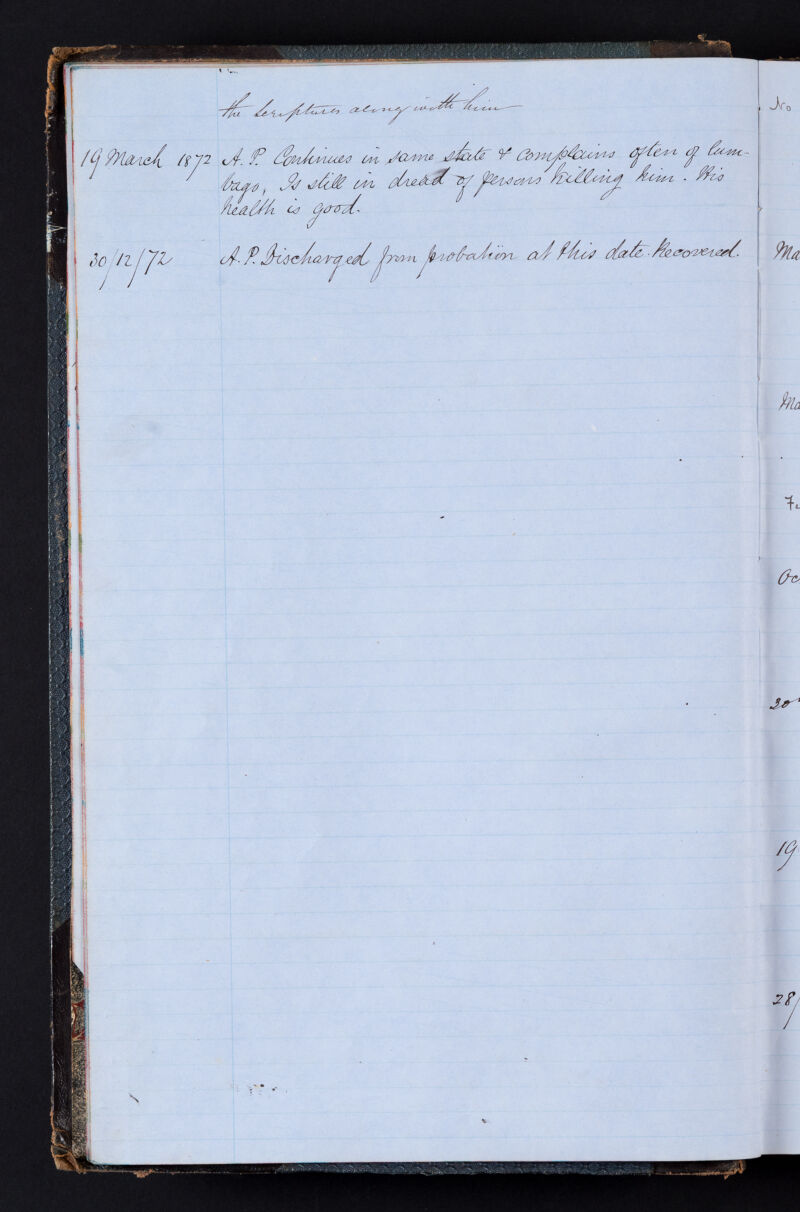 the Scriptures along with him
19 March 1872 A. P. Continues in same state & complains often of lum-
bago, Is still in dread of persons killing him. His
health is good.
30/12/72 A. P. Discharged from probation at this date. Recovered.
No
Ma
Ma
Oc
20
19
28/